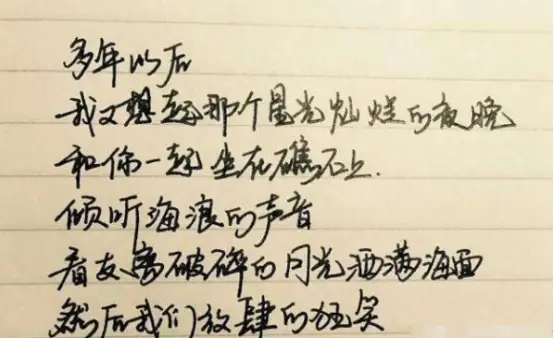 多年以后
我又想起那个星光灿烂的夜晚
和你一起坐在礁石上.
倾听海浪的声音
看支离破碎的月光洒满海面
然后我们放肆的狂笑